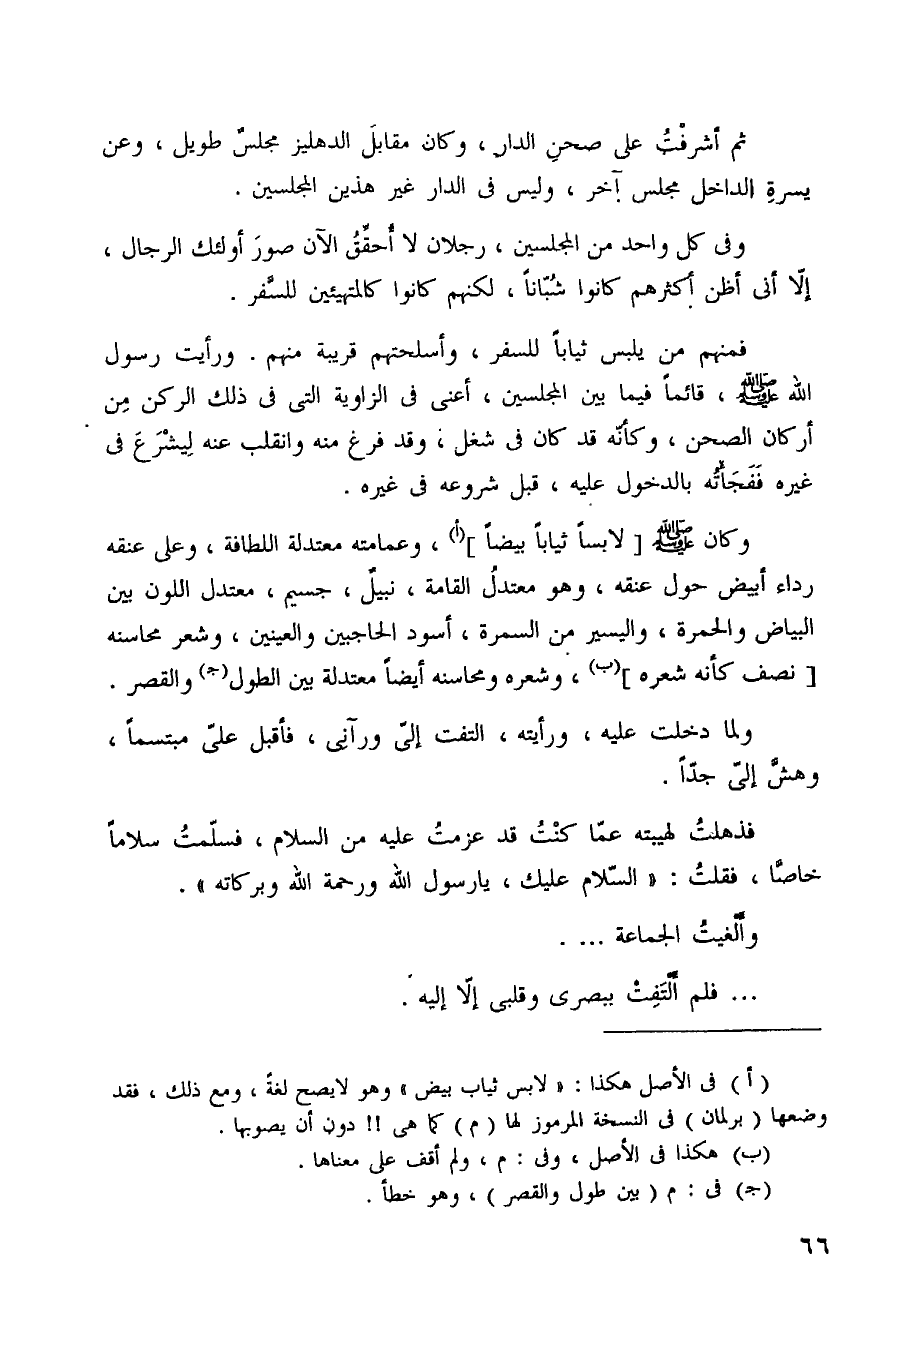 ثم أشرفْتُ على صحنِ الدار ، وكان مقابلَ الدهليز مجلسٌ طويل ، وعن
يسرةِ الداخل مجلس آخر ، وليس فى الدار غير هذين المجلسين .
وفى كل واحد من المجلسين ، رجلان لا أُحقِّقُ الآن صورَ أولئك الرجال ،
إلّا أنى أظن أكثرهم كانوا شُبّاناً ، لكنهم كانوا كالمتهيئين للسَّفر .
فمنهم من يلبس ثياباً للسفر ، وأسلحتهم قريبة منهم . ورأيت رسول
الله ﷺ ، قائماً فيما بين المجلسين ، أعنى فى الزاوية التى فى ذلك الركن مِن
أركان الصحن ، وكأنّه قد كان فى شغل ، وقد فرغ منه وانقلب عنه لِيشْرَعَ فى
غيره فَفَجَأْتُه بالدخول عليه ، قبل شروعه فى غيره .
وكان ﷺ [ لابساً ثياباً بيضاً ](أ) ، وعمامته معتدلة اللطافة ، وعلى عنقه
رداء أبيض حول عنقه ، وهو معتدلُ القامة ، نبيلٌ ، جسيم ، معتدل اللون بين
البياض والحمرة ، واليسير من السمرة ، أسود الحاجبين والعينين ، وشعر محاسنه
[ نصف كأنه شعره ](ب) ، وشعره ومحاسنه أيضاً معتدلة بين الطول(جـ) والقصر .
ولما دخلت عليه ، ورأيته ، التفت إلىّ ورآنِى ، فأقبل علىّ مبتسماً ،
وهشَّ إلىّ جدّاً .
فذهلتُ لهيبته عمّا كنْتُ قد عزمتُ عليه من السلام ، فسلّمتُ سلاماً
خاصًّا ، فقلتُ : « السّلام عليك ، يارسول الله ورحمة الله وبركاته » .
وألْغيتُ الجماعة ... .
... فلم ألْتَفِتْ ببصرى وقلبى إلّا إليه .
( أ ) فى الأصل هكذا : « لابس ثياب بيض » وهو لايصح لغةً ، ومع ذلك ، فقد
وضعها ( برلمان ) فى النسخة المرموز لها ( م ) كما هى !! دون أن يصوبها .
(ب) هكذا فى الأصل ، وفى : م ، ولم أقف على معناها .
(جـ) فى : م ( بين طول والقصر ) ، وهو خطأ .
٦٦